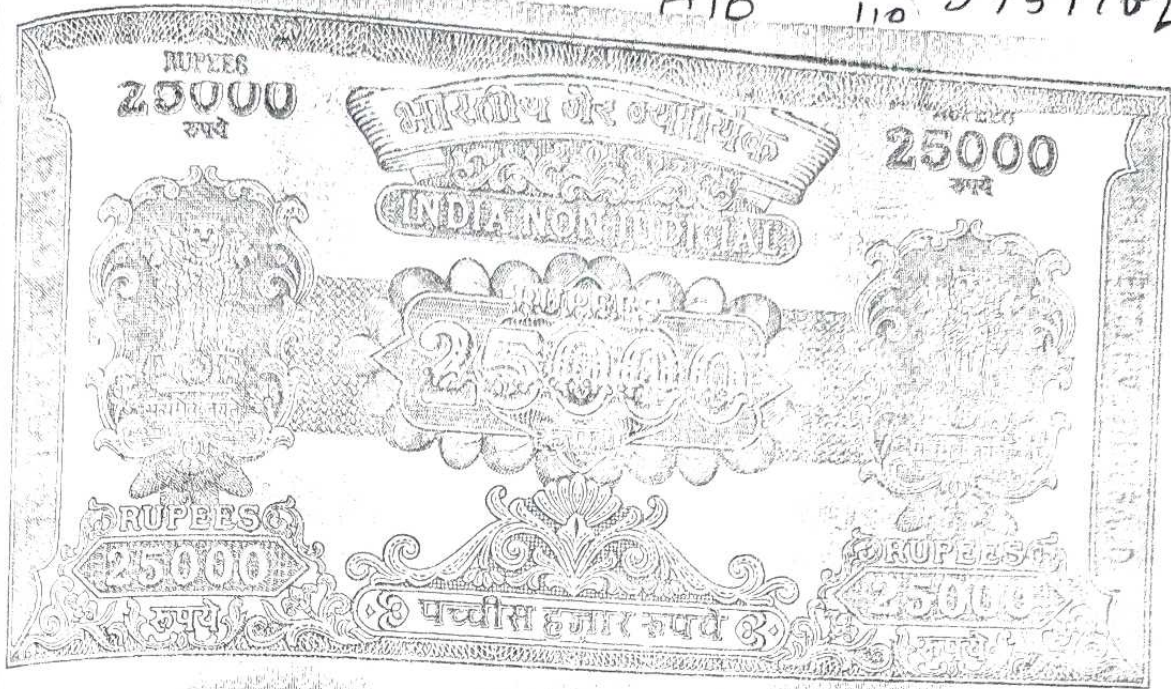 RUPEES
25000
रुपये
भारतीय गैर न्यायिक
INDIA NON JUDICIAL
RUPEES
25000
रुपये
RUPEES
25000
RUPEES
25000
रुपये
पच्चीस हजार रुपये
RUPEES
25000
रुपये